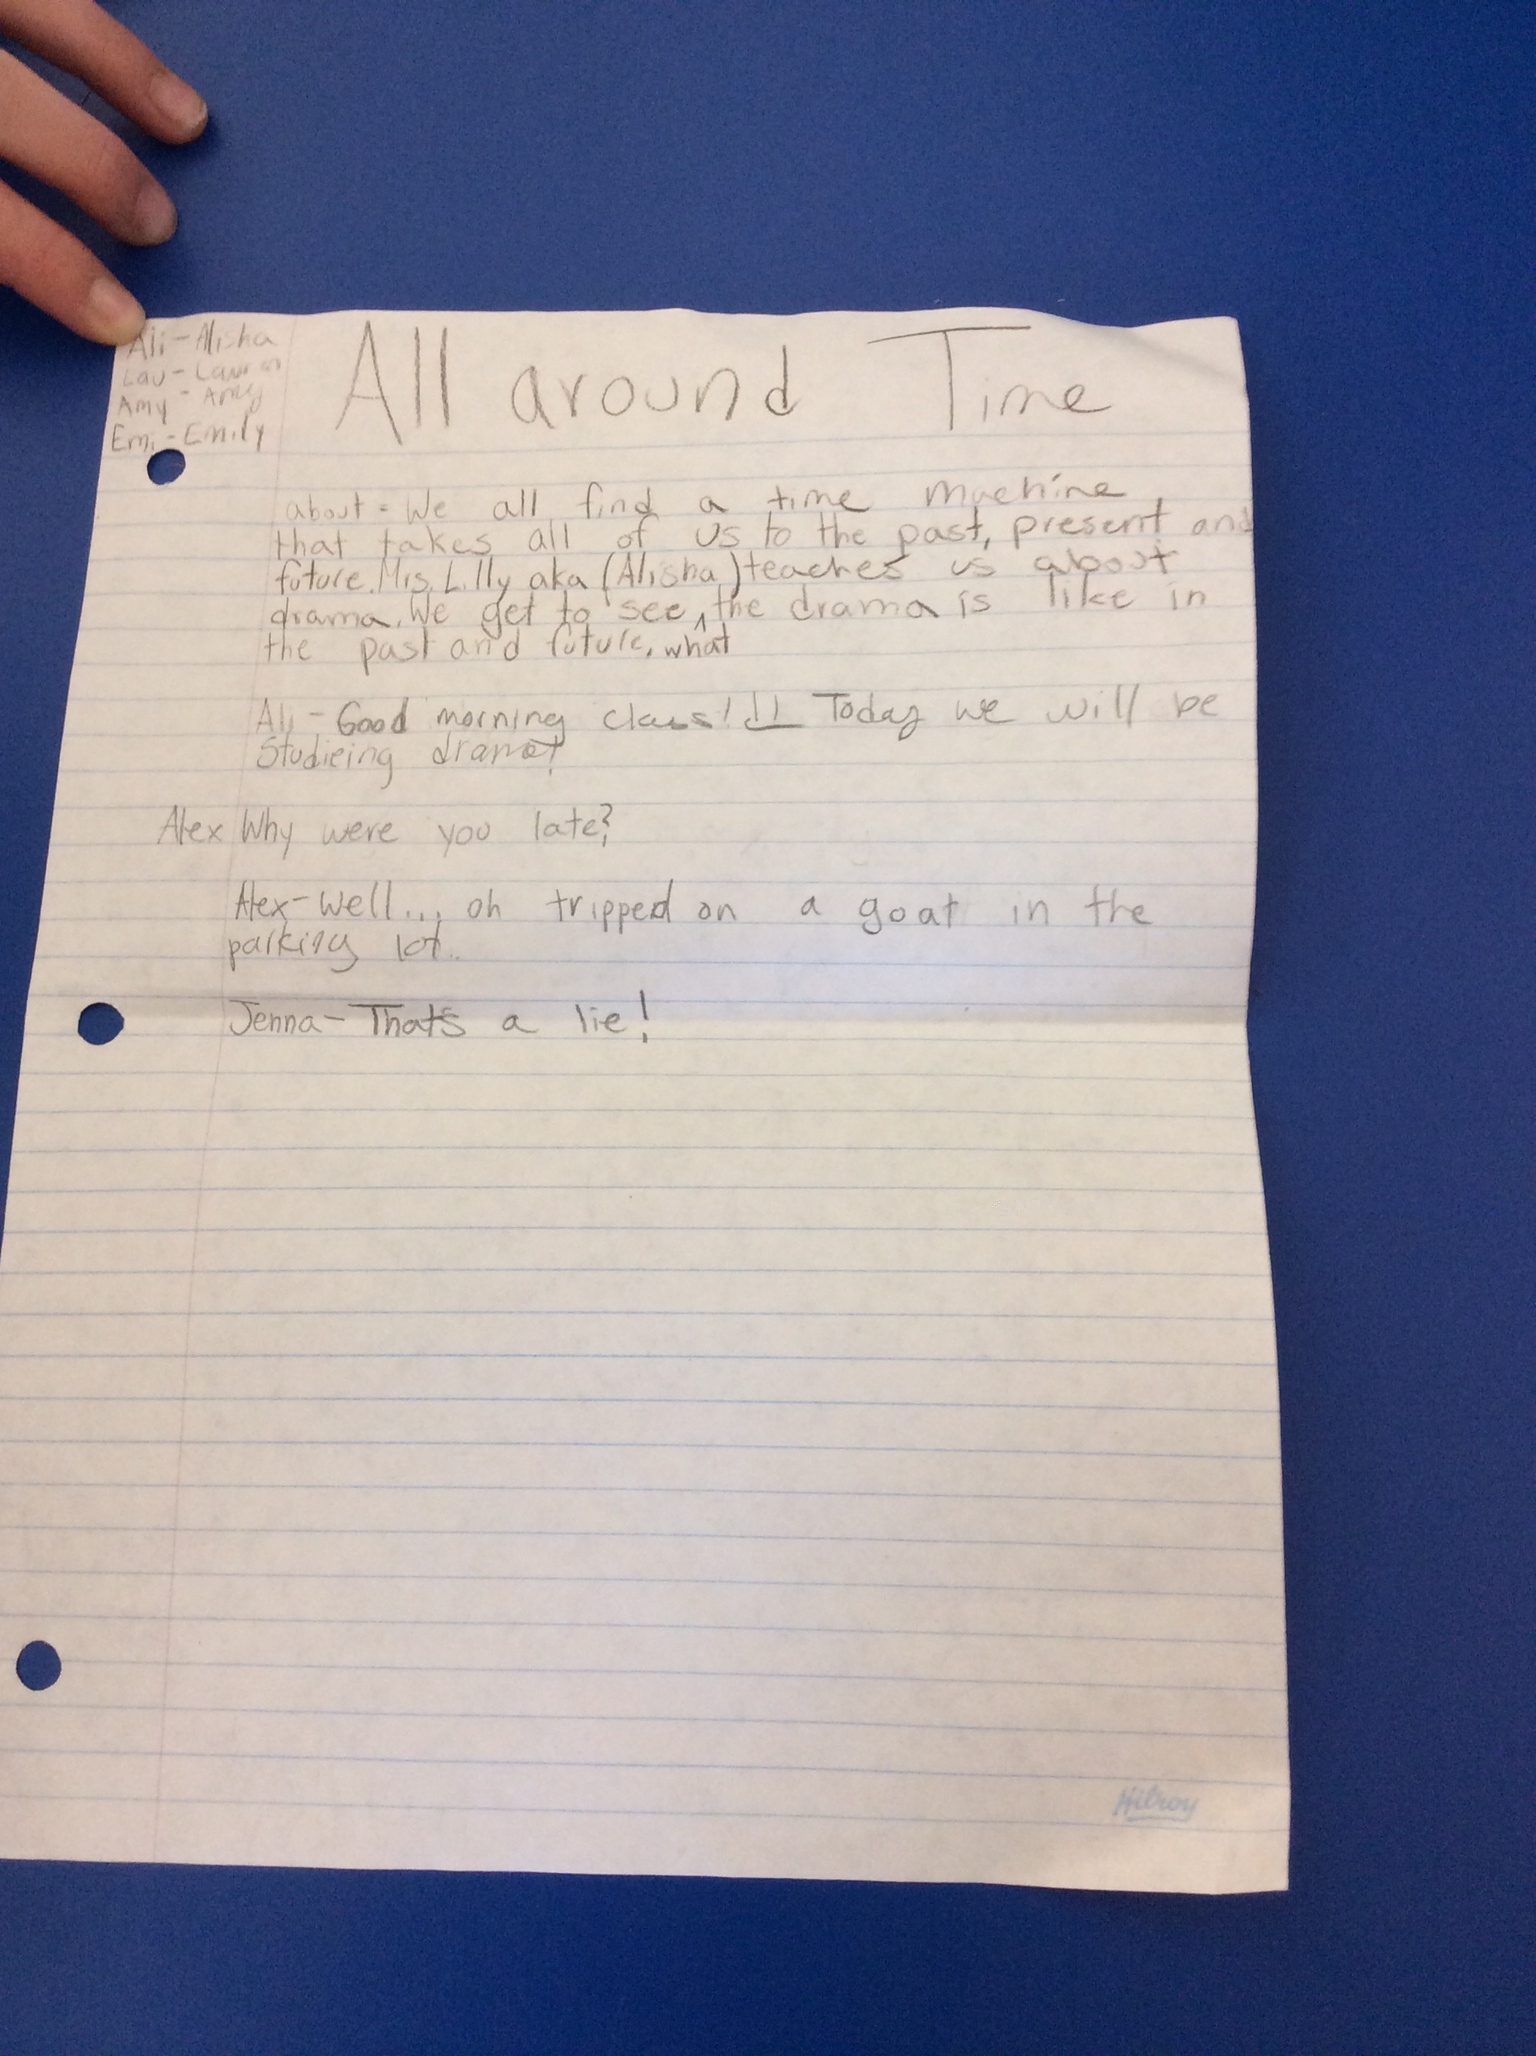 Ali-Alisha
Lau-Lauren
Amy-Amy
Emi-Emily
All around Time
about-We all find a time machine,
that takes all of us to the past, present and
future. Mrs. Lilly aka (Alisha) teaches us about
drama. We get to see ^ the drama is like in
the past and future. what
Ali-Good morning class!!! Today we will be
Studieing drama!
Alex Why were you late?
Alex-Well... oh tripped on a goat in the
parking lot..
Jenna-Thats a lie!
Hilroy